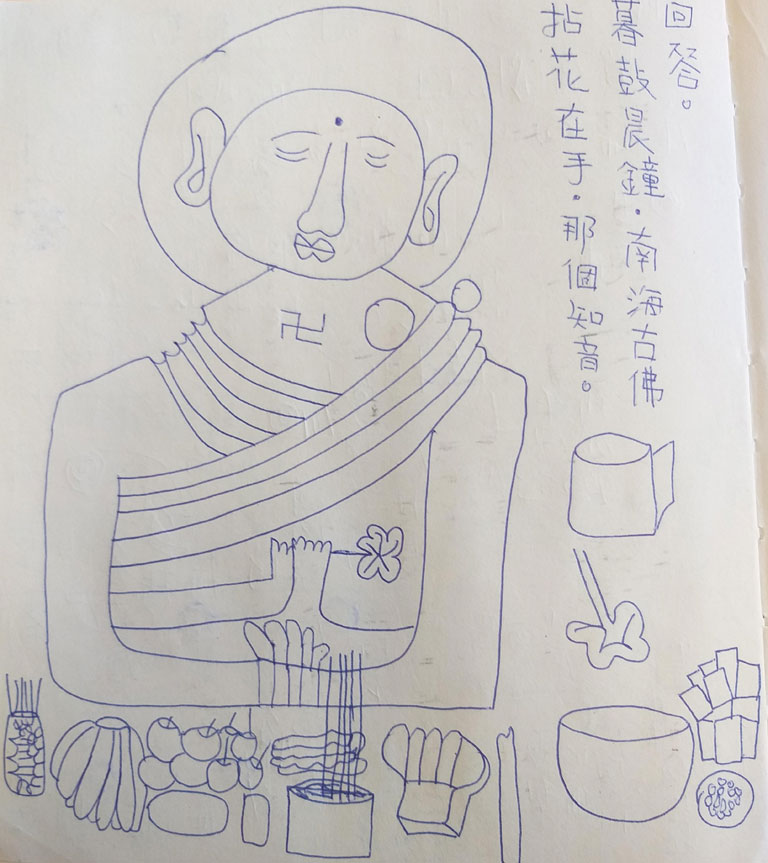 回答。
暮鼓晨鐘.南海古佛
拈花在手.那個知音。
卍